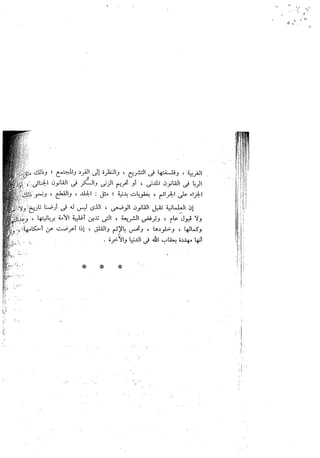 الغربية ، وفلسفتها فى التشريع ، والنظرة إلى الفرد والمجتمع ؛ وذلك مثل
الربا فى القانون المدنى ، أو تحريم الزنى والسكر فى القانون الجنائى ،
الجزاء على الجرائم ، بعقوبات بدنية ؛ مثل : الجلد ، والقطع ، ونحو ذلك
إن العلمانية تقبل القانون الوضعى ، الذى ليس له فى أرضنا تاريخ ولا
ولا قبول عام ، وترفض الشريعة ، التى تدين أغلبية الأمة بربانيتها ، وعدالتها
وكمالها ، وخلودها ، وتحس بالإثم والقلق ، إذا أعرضت عن أحكامها
أنها مهددة بعقاب الله فى الدنيا والآخرة .
* * *